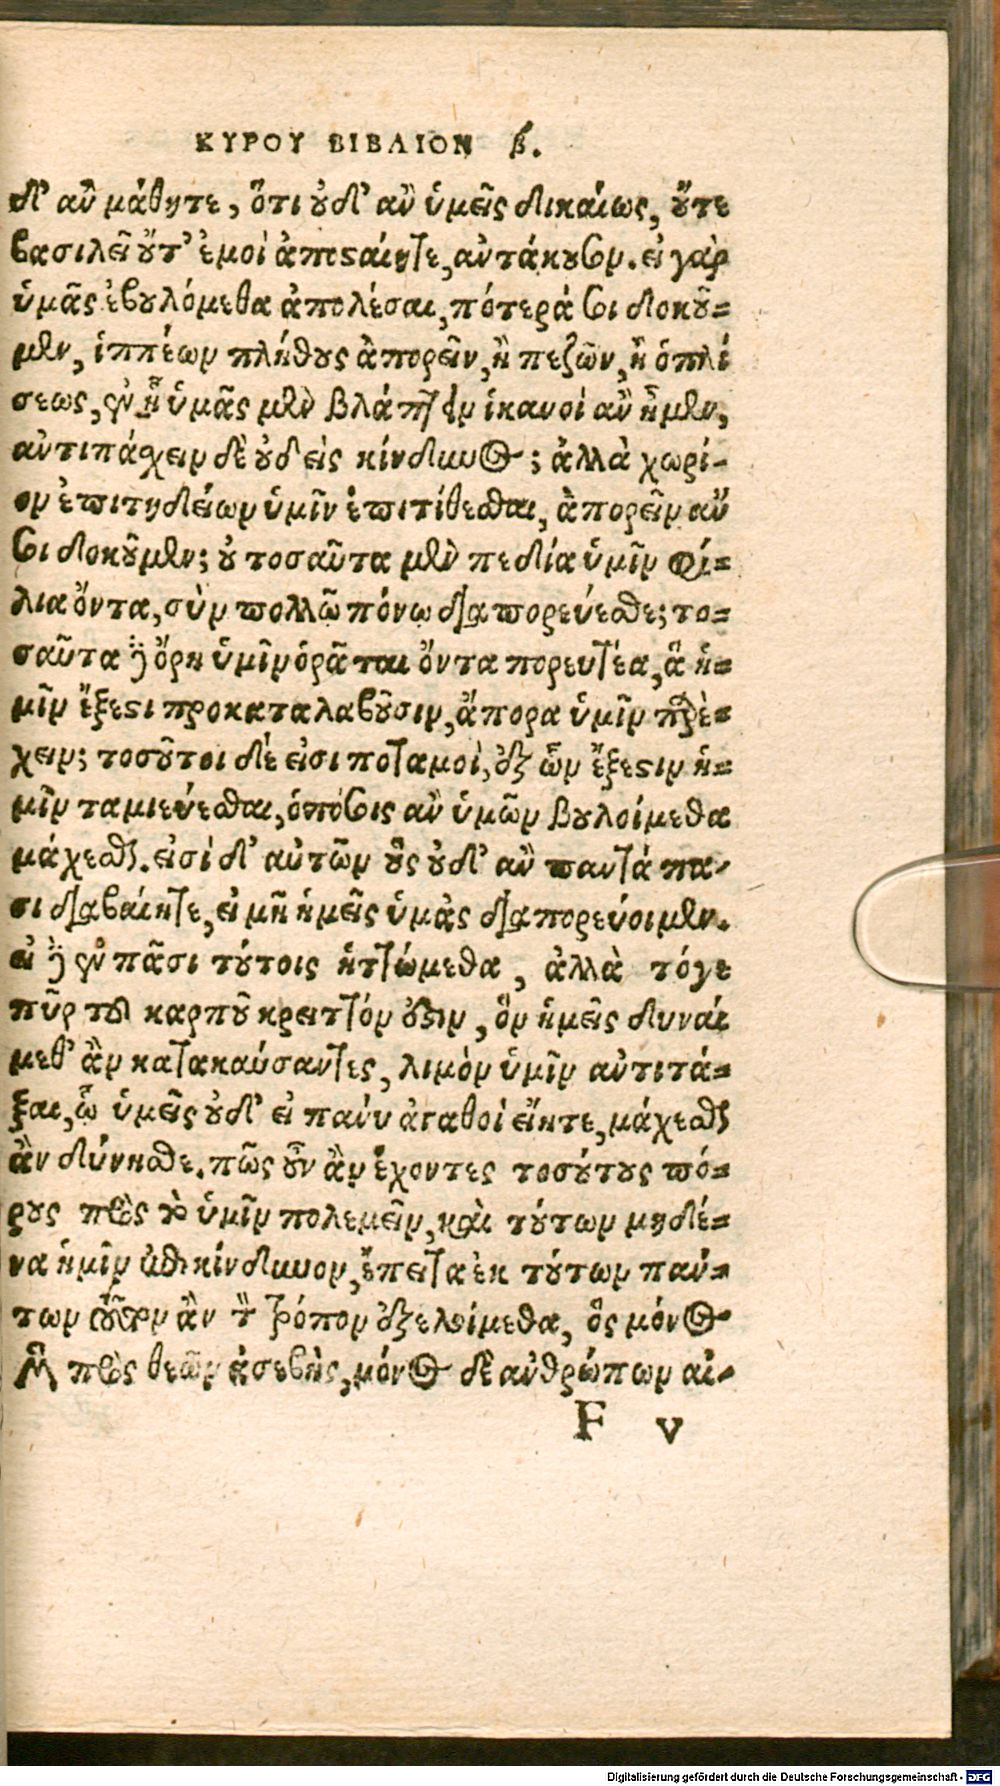 ΚΥΡΟΥ ΒΙΒΛΙΟΝ β.
δ' ἂν μάθητε, ὅτι ȣ̓δ' ἂν ὑμεῖς δικαίως, ȣ̓́τε
βασιλεῖ ȣ̓́τ' ἐμοὶ ἀπιϛαίητε, ἀντάκȣσον. εἰ γὰρ
ὑμᾶς ἐβȣλόμεθα ἀπολέσαι, πότερά σοι δοκȣ͂-
μεν, ἱππέων πλήθȣς ἀπορεῖν, ἢ πεζῶν, ἢ ὁπλί
σεως, ἐν ᾗ ὑμᾶς μὲν βλάπτειν ἱκανοὶ ἂν ἦμεν,
ἀντιπάχειν δὲ ȣ̓δεὶς κίνδυνος; ἀλλὰ χωρί-
ον ἐπιτηδείων ὑμῖν ἐπιτίθεσθαι, ἀπορεῖν ἄν
σοι δοκȣ͂μεν; ȣ̓ τοσαῦτα μὲν πεδία ὑμῖν φί-
λια ὄντα, σὺν πολλῷ πόνῳ διαπορεύεσθε; το-
σαῦτα δὲ ὄρη ὑμῖν ὁρᾶται ὄντα πορευτέα, ἃ ἡ-
μῖν ἔξεϛι προκαταλαβȣ͂σιν, ἄπορα ὑμῖν παρέ-
χειν; τοσȣ͂τοι δέ εἰσι ποταμοὶ, ἐξ ὧν ἔξεϛιν ἡ-
μῖν ταμιεύεσθαι, ὁπόσοις ἂν ὑμῶν βȣλοίμεθα
μάχεσθαι. εἰσὶ δ' αὐτῶν ȣ̔̀ς ȣ̓δ' ἂν παντά πα-
σι διαβαίητε, εἰ μὴ ἡμεῖς ὑμᾶς διαπορεύοιμεν.
εἰ δὲ ἐν πᾶσι τȣ́τοις ἡττώμεθα, ἀλλὰ τόγε
πῦρ τοῦ καρπȣ͂ κρειττόν ἐϛιν, ὃν ἡμεῖς δυναί
μεθ' ἂν κατακαύσαντες, λιμὸν ὑμῖν ἀντιτά-
ξαι, ᾧ ὑμεῖς ȣ̓δ' εἰ πάνυ ἀγαθοὶ εἴητε, μάχεσθαι
ἂν δύνησθε. πῶς ȣ̓͂ν ἂν ἔχοντες τοσȣ́τȣς πό-
ρȣς πρὸς τὸ ὑμῖν πολεμεῖν, καὶ τȣ́των μηδέ-
να ἡμῖν ἐπικίνδυνον, ἔπειτα ἐκ τȣ́των πάν-
των ἂν τὸν τρόπον ἐξελοίμεθα, ὃς μόνος
μὲν πρὸς θεῶν ἀσεβὴς, μόνος δὲ ἀνθρώπων αἰ-
F v
Digitalisierung gefördert durch die Deutsche Forschungsgemeinschaft - DFG